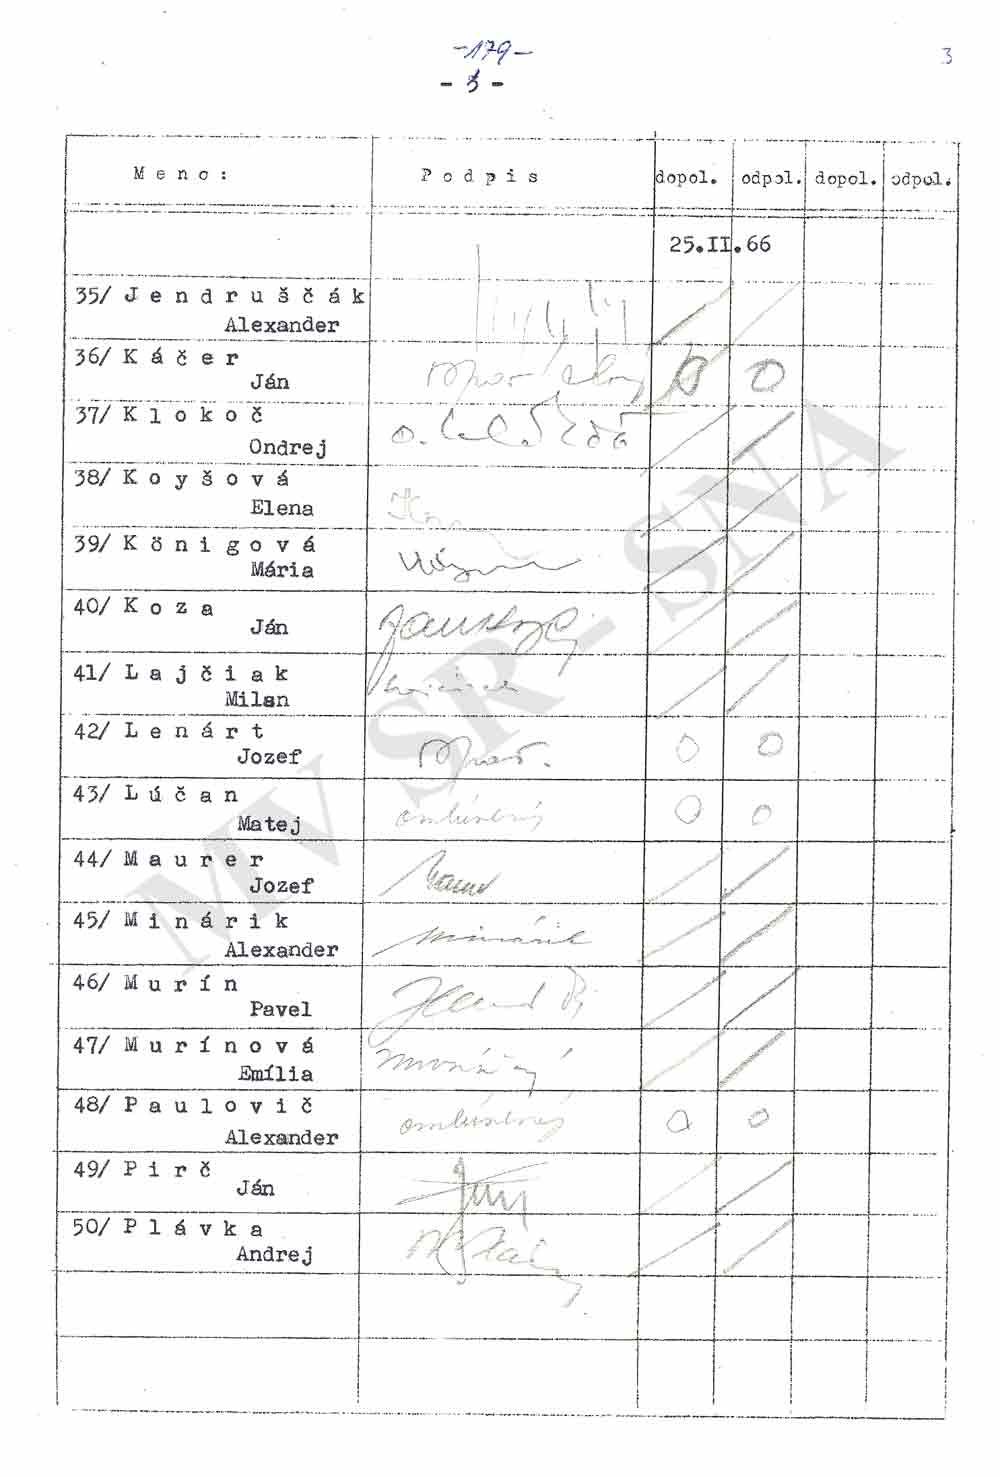 -179-
3
- 3 -
Meno: Podpis dopol. odpol. dopol. odpol.
25.II.66
35/ Jendruščák
Alexander
36/ Káčer
Ján
O O
37/ Klokoč
Ondrej
38/ Koyšová
Elena
39/ Kőnigová
Mária
40/ Koza
Ján
41/ Lajčiak
Milan
42/ Lenárt
Jozef
O O
43/ Lúčan
Matej
O O
44/ Maurer
Jozef
45/ Minárik
Alexander
Minárik
46/ Murín
Pavel
47/ Murínová
Emília
48/ Paulovič
Alexander
O O
49/ Pirč
Ján
50/ Plávka
Andrej
MV SR - SNA